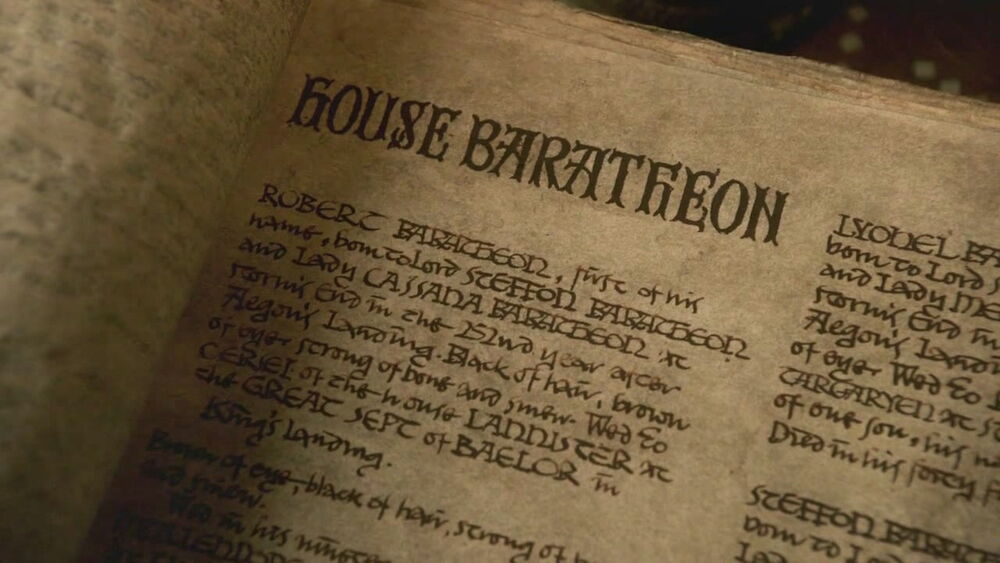 HOUSE BARATHEON
ROBERT BARATHEON, first of his
name, born to Lord STEFFON BARATHEON
and Lady CASSANA BARATHEON at
Storm's End in the 262nd year after
Aegon's Landing. Black of hair, brown
of eye, strong of bone and sinew. Wed to
CERSEI of the house LANNISTER at
the GREAT SEPT of BAELOR in
King's Landing.
of eye, black of hair, strong of
and sinew.
Wed in his
LYONEL
born to Lord
and Lady
Storm's End in
Aegon's
of eye. Wed to
TARGARYEN at
of one son, his
Died in his forty
STEFFON
born to